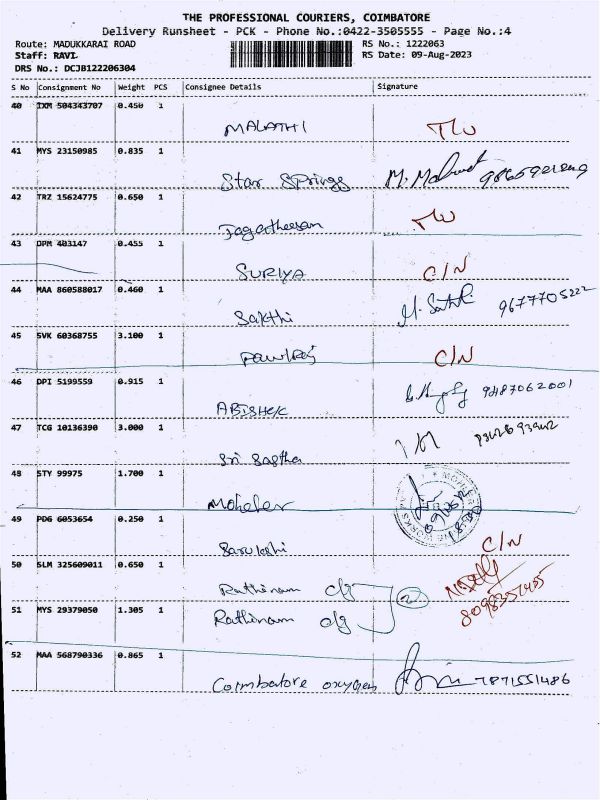 THE PROFESSIONAL COURIERS, COIMBATORE
Delivery Runsheet - PCK - Phone No.:0422-3505555 - Page No.:4
Route: MADUKKARAI ROAD RS No.: 1222063
Staff: RAVI RS Date: 09-Aug-2023
DRS No.: DCJB122206304
S No Consignment No Weight PCS Consignee Details Signature
40 IXM 504343707 0.450 1
MALATHI
41 MYS 23150985 0.835 1
Star Springs
42 TRZ 15624775 0.650 1
Jagatheesan
43 DPM 403147 0.455 1
SURIYA C/N
44 MAA 860588017 0.460 1
Sakthi 9677705222
45 SVK 60368755 3.100 1
C/N
46 DPI 5199559 0.915 1
ABISHEK 9487062001
47 TCG 10136390 3.000 1
Sri Sastha
48 STY 99975 1.700 1
49 PDG 6053654 0.250 1
C/N
50 SLM 325609011 0.650 1
Rathinam clg
51 MYS 29379050 1.305 1
Rathinam clg 2
52 MAA 568790336 0.865 1
Coimbatore oxygen 7871551486